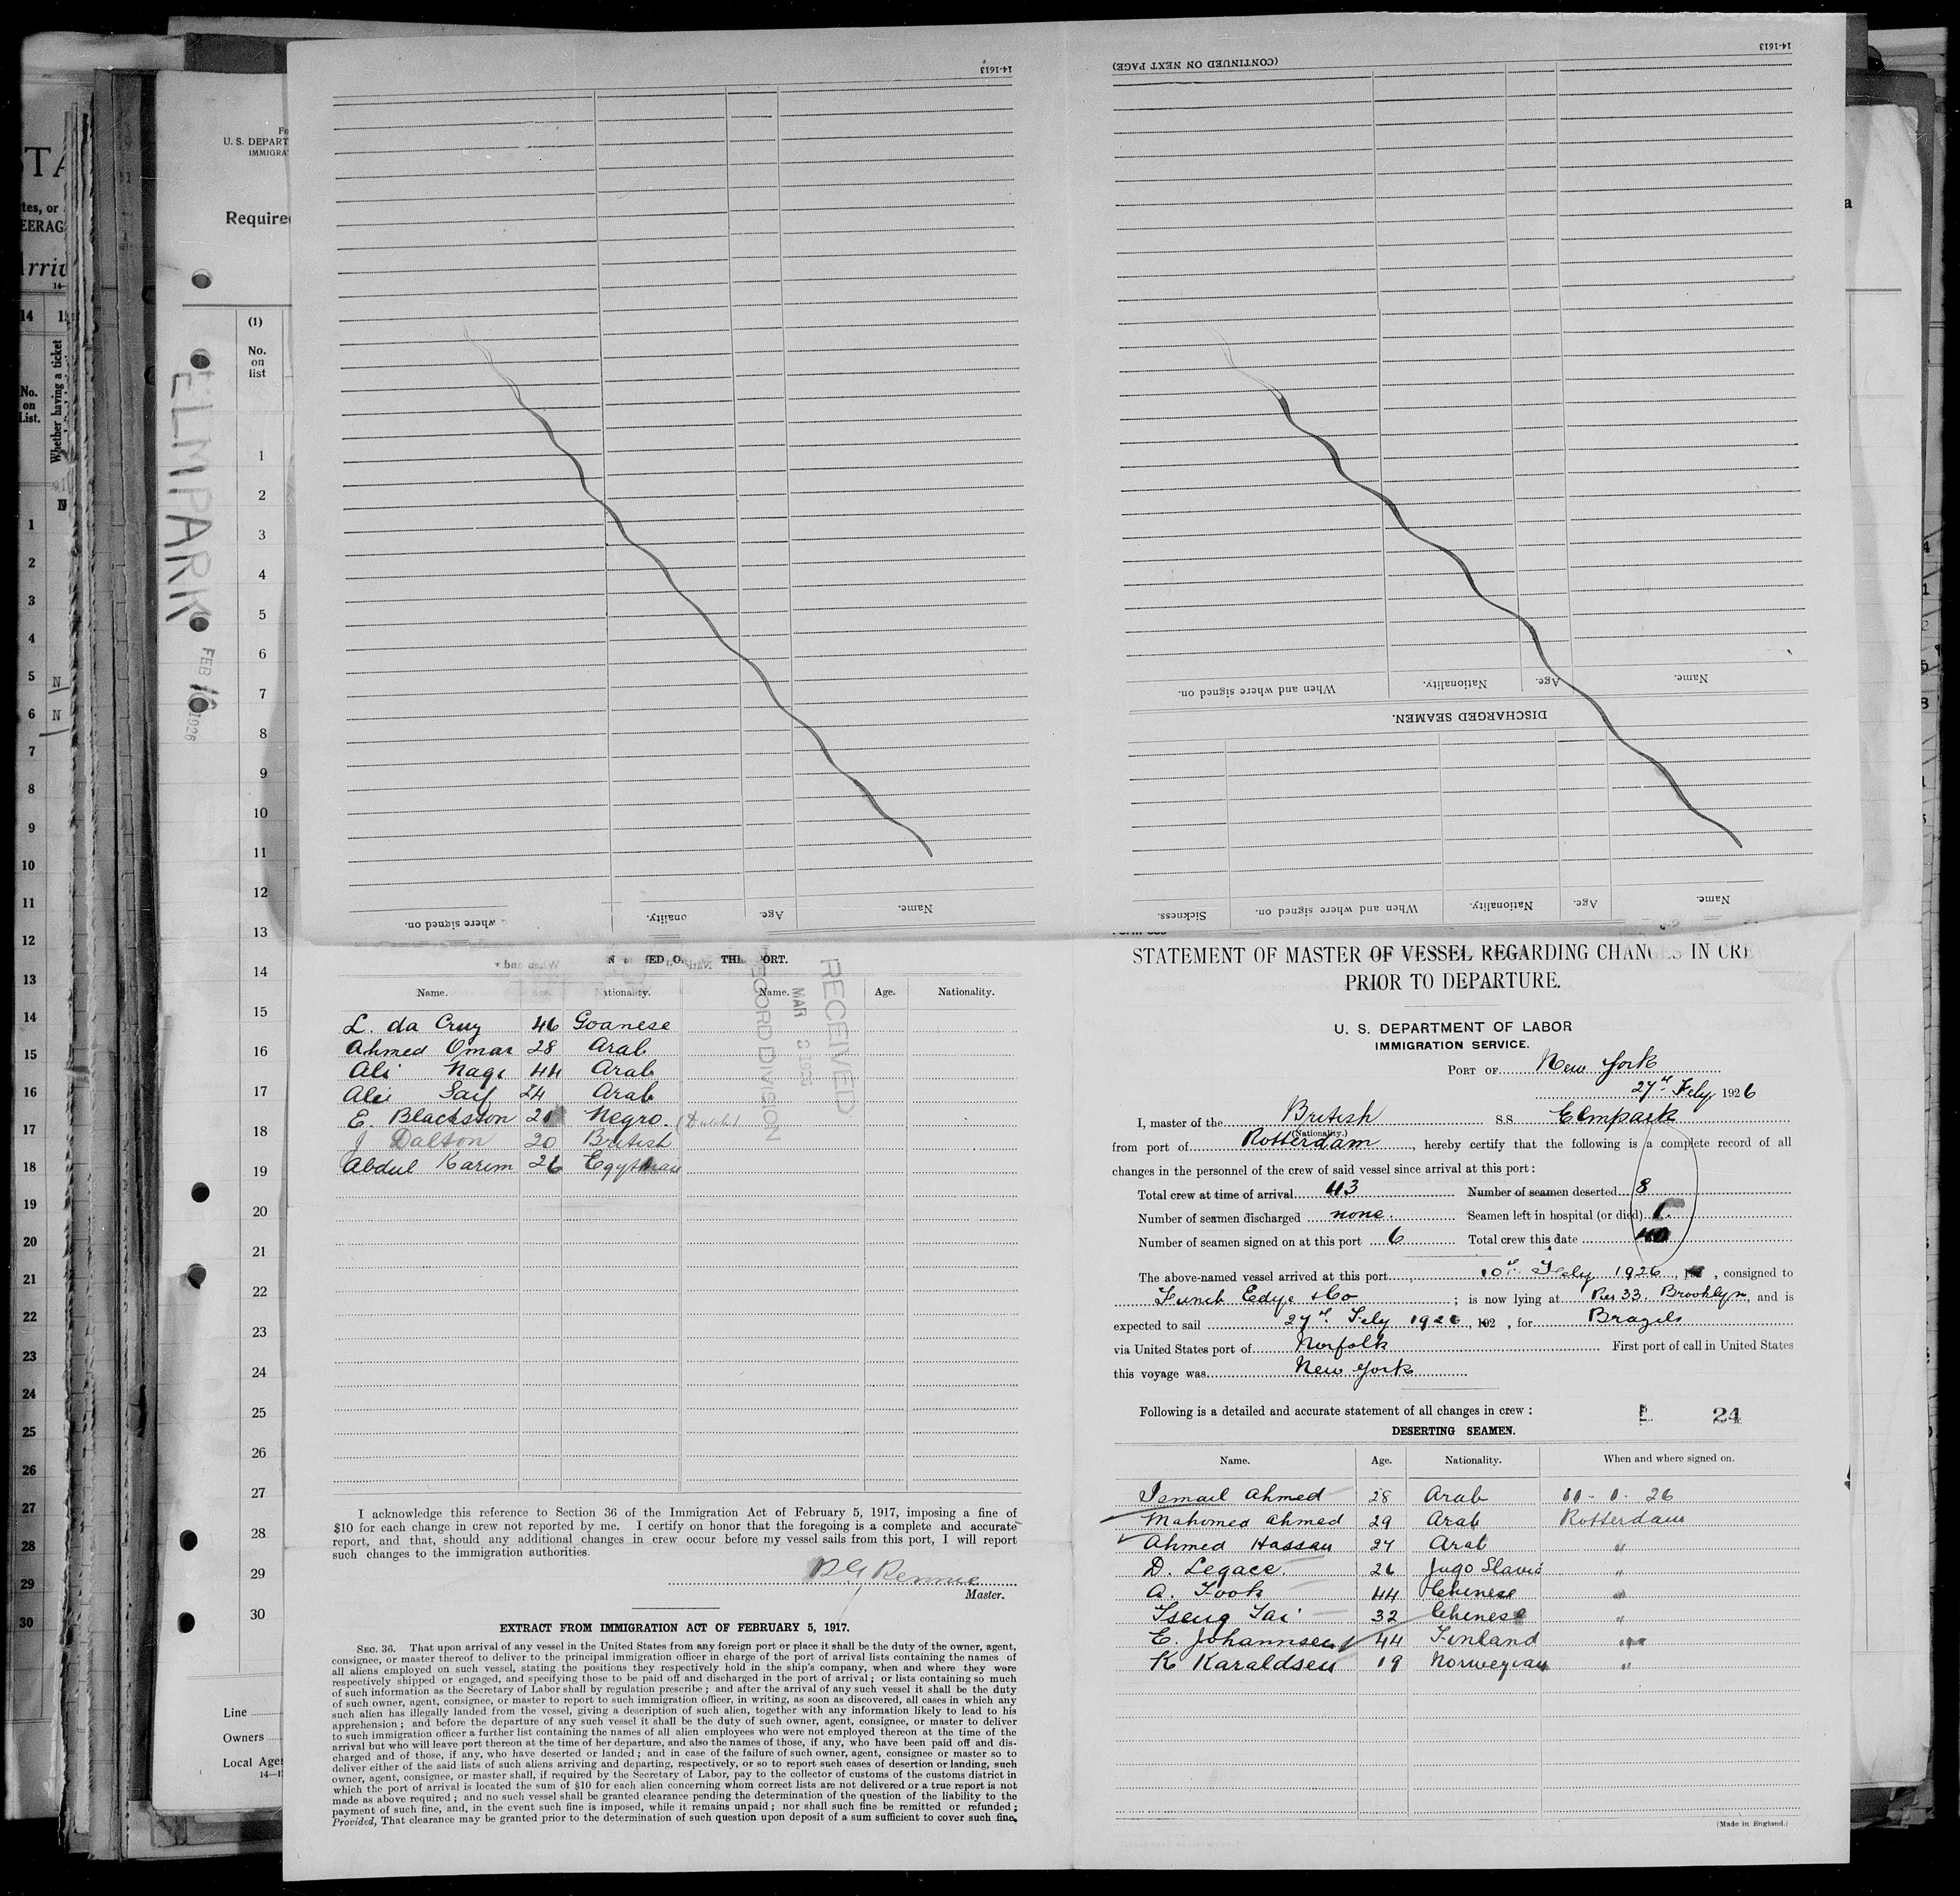 STA
tes, or
EERAG
rriv
14
No. on List.
Whether having a ticket
1
2
3
4
5 N
6 N
7
8
9
10
11
12
13
14
15
16
17
18
19
20
21
22
23
24
25
26
27
28
29
30
U. S. DEPART
IMMIGRA
Require
(1)
No.
on
list
ELMPARK
FEB 16 1926
1
2
3
4
5
6
7
8
9
10
11
12
13
14
15
16
17
18
19
20
21
22
23
24
25
26
27
28
29
30
Line
Owners
Local Age
14-1613
where signed on. onality. Age. Name.
14-1613
(CONTINUED ON NEXT PAGE)
When and where signed on. Nationality. Age. Name.
DISCHARGED SEAMEN.
Sickness. When and where signed on. Nationality. Age. Name.
Name. Nationality. Name. Age. Nationality.
L. da Cruz 46 Goanese
Ahmed Omar 28 Arab
Ali Nagi 44 Arab
Ali Saif 24 Arab
E. Blackston Negro. (Dutch)
J Dalton 20 British
Abdul Karim 26 Egyptian
RECEIVED
MAR 2 1926
RECORD DIVISION
I acknowledge this reference to Section 36 of the Immigration Act of February 5, 1917, imposing a fine of
$10 for each change in crew not reported by me. I certify on honor that the foregoing is a complete and accurate
report, and that, should any additional changes in crew occur before my vessel sails from this port, I will report
such changes to the immigration authorities.
Rennie
Master.
EXTRACT FROM IMMIGRATION ACT OF FEBRUARY 5, 1917.
SEC. 36. That upon arrival of any vessel in the United States from any foreign port or place it shall be the duty of the owner, agent,
consignee, or master thereof to deliver to the principal immigration officer in charge of the port of arrival lists containing the names of
all aliens employed on such vessel, stating the positions they respectively hold in the ship's company, when and where they were
respectively shipped or engaged, and specifying those to be paid off and discharged in the port of arrival; or lists containing so much
of such information as the Secretary of Labor shall by regulation prescribe; and after the arrival of any such vessel it shall be the duty
of such owner, agent, consignee, or master to report to such immigration officer, in writing, as soon as discovered, all cases in which any
such alien has illegally landed from the vessel, giving a description of such alien, together with any information likely to lead to his
apprehension; and before the departure of any such vessel it shall be the duty of such owner, agent, consignee, or master to deliver
to such immigration officer a further list containing the names of all alien employees who were not employed thereon at the time of the
arrival but who will leave port thereon at the time of her departure, and also the names of those, if any, who have been paid off and dis-
charged and of those, if any, who have deserted or landed; and in case of the failure of such owner, agent, consignee or master so to
deliver either of the said lists of such aliens arriving and departing, respectively, or so to report such cases of desertion or landing, such
owner, agent, consignee, or master shall, if required by the Secretary of Labor, pay to the collector of customs of the customs district in
which the port of arrival is located the sum of $10 for each alien concerning whom correct lists are not delivered or a true report is not
made as above required; and no such vessel shall be granted clearance pending the determination of the question of the liability to the
payment of such fine, and, in the event such fine is imposed, while it remains unpaid; nor shall such fine be remitted or refunded;
Provided, That clearance may be granted prior to the determination of such question upon deposit of a sum sufficient to cover such fine.
STATEMENT OF MASTER OF VESSEL REGARDING CHANGES IN CRE
PRIOR TO DEPARTURE.
U. S. DEPARTMENT OF LABOR
IMMIGRATION SERVICE.
PORT OF New York
27th Feby 1926
I, master of the British S.S. Elmpark
(Nationality.)
from port of Rotterdam, hereby certify that the following is a complete record of all
changes in the personnel of the crew of said vessel since arrival at this port:
Total crew at time of arrival 43 Number of seamen deserted 8
Number of seamen discharged none. Seamen left in hospital (or died) 1
Number of seamen signed on at this port 6 Total crew this date 40
The above-named vessel arrived at this port 10th Feby 1926, consigned to
Funch Edye & Co; is now lying at Pier 33. Brooklyn, and is
expected to sail 27th Feby 1926, 192 , for Brazils
via United States port of Norfolk First port of call in United States
this voyage was New York
Following is a detailed and accurate statement of all changes in crew: 24
DESERTING SEAMEN.
Name. Age. Nationality. When and where signed on.
Ismail Ahmed 28 Arab 11 - 1 - 26
Mahomed Ahmed 29 Arab Rotterdam
Ahmed Hassan 27 Arab "
D. Legace. 26 Jugo Slavia "
A. Fook 44 Chinese "
Tseng Tai 32 Chinese "
E. Johannsen 44 Finland "
K Karaldsen 19 Norwegian "
(Made in England.)